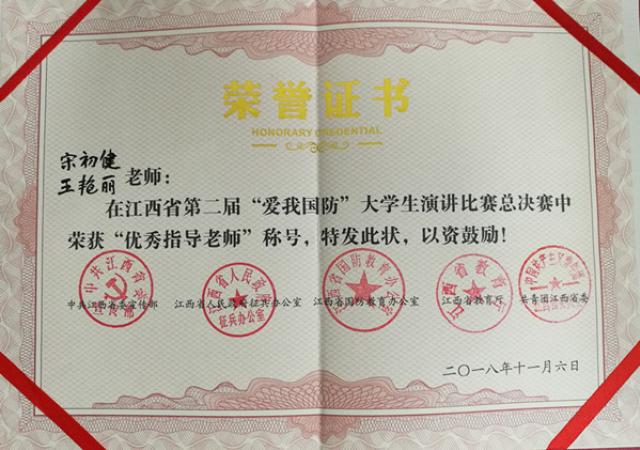 荣誉证书
HONORARY CREDENTIAL
宋初健
王艳丽 老师：
在江西省第二届“爱我国防”大学生演讲比赛总决赛中
荣获“优秀指导老师”称号，特发此状，以资鼓励！
中共江西省委宣传部 江西省人民政府征兵办公室 江西省国防教育办公室 江西省教育厅 共青团江西省委
征兵办公室
二〇一八年十一月六日